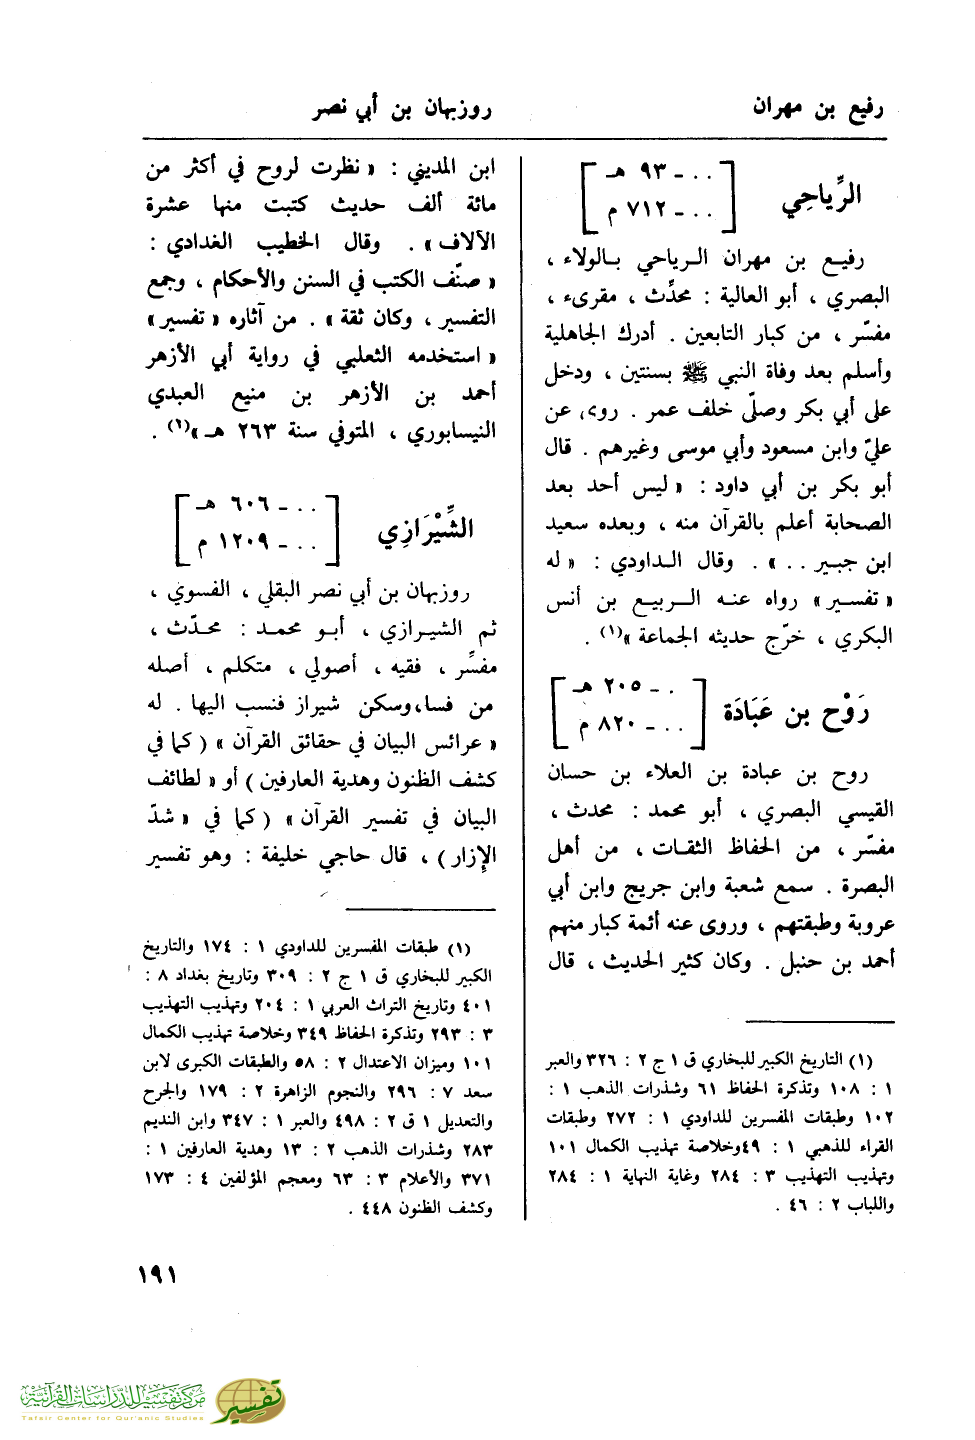 رفيع بن مهران
روزبهان بن أبي نصر
الرِّياحِي
[.. ـ ٩٣ هـ
.. ـ ٧١٢ م]
رفيـع بن مهران الـرياحي بـالولاء ،
البصري ، أبو العالية : محدِّث ، مقرىء ،
مفسّر ، من كبار التابعين . أدرك الجاهلية
وأسلم بعد وفاة النبي ﷺ بسنتين ، ودخل
على أبي بكر وصلّى خلف عمر . روى عن
عليّ وابن مسعود وأبي موسى وغيرهم . قال
أبو بكر بن أبي داود : « ليس أحد بعد
الصحابة أعلم بالقرآن منه ، وبعده سعيد
ابن جبير . . » . وقال الـداودي : « له
« تفسير » رواه عنه الربيع بن أنس
البكري ، خرّج حديثه الجماعة »(١) .
رَوْح بن عَبَادَة
[. ـ ٢٠٥ هـ
.. ـ ٨٢٠ م]
روح بن عبادة بن العلاء بن حسان
القيسي البصري ، أبو محمد : محدث ،
مفسّر ، من الحفاظ الثقـات ، من أهل
البصرة . سمع شعبة وابن جريج وابن أبي
عروبة وطبقتهم ، وروى عنه أئمة كبار منهم
أحمد بن حنبل . وكان كثير الحديث ، قال
(١) التاريخ الكبير للبخاري ق ١ ج ٢ : ٣٢٦ والعبر
١ : ١٠٨ وتذكرة الحفاظ ٦١ وشذرات الذهب ١ :
١٠٢ وطبقات المفسرين للداودي ١ : ٢٧٢ وطبقات
القراء للذهبي ١ : ٤٩وخلاصة تهذيب الكمال ١٠١
وتهذيب التهذيب ٣ : ٢٨٤ وغاية النهاية ١ : ٢٨٤
واللباب ٢ : ٤٦ .
ابن المديني : « نظرت لروح في أكثر من
مائة ألف حديث كتبت منها عشرة
الآلاف » . وقال الخطيب الغدادي :
« صنّف الكتب في السنن والأحكام ، وجمع
التفسير ، وكان ثقة » . من آثاره « تفسير »
« استخدمه الثعلبي في رواية أبي الأزهر
أحمد بن الأزهر بن منيع العبدي
النيسابوري ، المتوفي سنة ٢٦٣ هـ »(١) .
الشِّيْرَازِي
[.. ـ ٦٠٦ هـ
.. ـ ١٢٠٩ م]
روزبهان بن أبي نصر البقلي ، الفسوي ،
ثم الشيـرازي ، أبـو محمـد : محـدّث ،
مفسِّر ، فقيه ، أصولي ، متكلم ، أصله
من فسا،وسكن شيراز فنسب اليها . له
« عرائس البيان في حقائق القرآن » ( كما في
كشف الظنون وهدية العارفين ) أو « لطائف
البيان في تفسير القرآن » ( كما في « شدّ
الإزار ) ، قال حاجي خليفة : وهو تفسير
(١) طبقات المفسرين للداودي ١ : ١٧٤ والتاريخ
الكبير للبخاري ق ١ ج ٢ : ٣٠٩ وتاريخ بغداد ٨ :
٤٠١ وتاريخ التراث العربي ١ : ٢٠٤ وتهذيب التهذيب
٣ : ٢٩٣ وتذكرة الحفاظ ٣٤٩ وخلاصة تهذيب الكمال
١٠١ وميزان الاعتدال ٢ : ٥٨ والطبقات الكبرى لابن
سعد ٧ : ٢٩٦ والنجوم الزاهرة ٢ : ١٧٩ والجرح
والتعديل ١ ق ٢ : ٤٩٨ والعبر ١ : ٣٤٧ وابن النديم
٢٨٣ وشذرات الذهب ٢ : ١٣ وهدية العارفين ١ :
٣٧١ والأعلام ٣ : ٦٣ ومعجم المؤلفين ٤ : ١٧٣
وكشف الظنون ٤٤٨ .
١٩١
مركز تفسير للدراسات القرآنية
Tafsir Center for Qur'anic Studies
تفسير